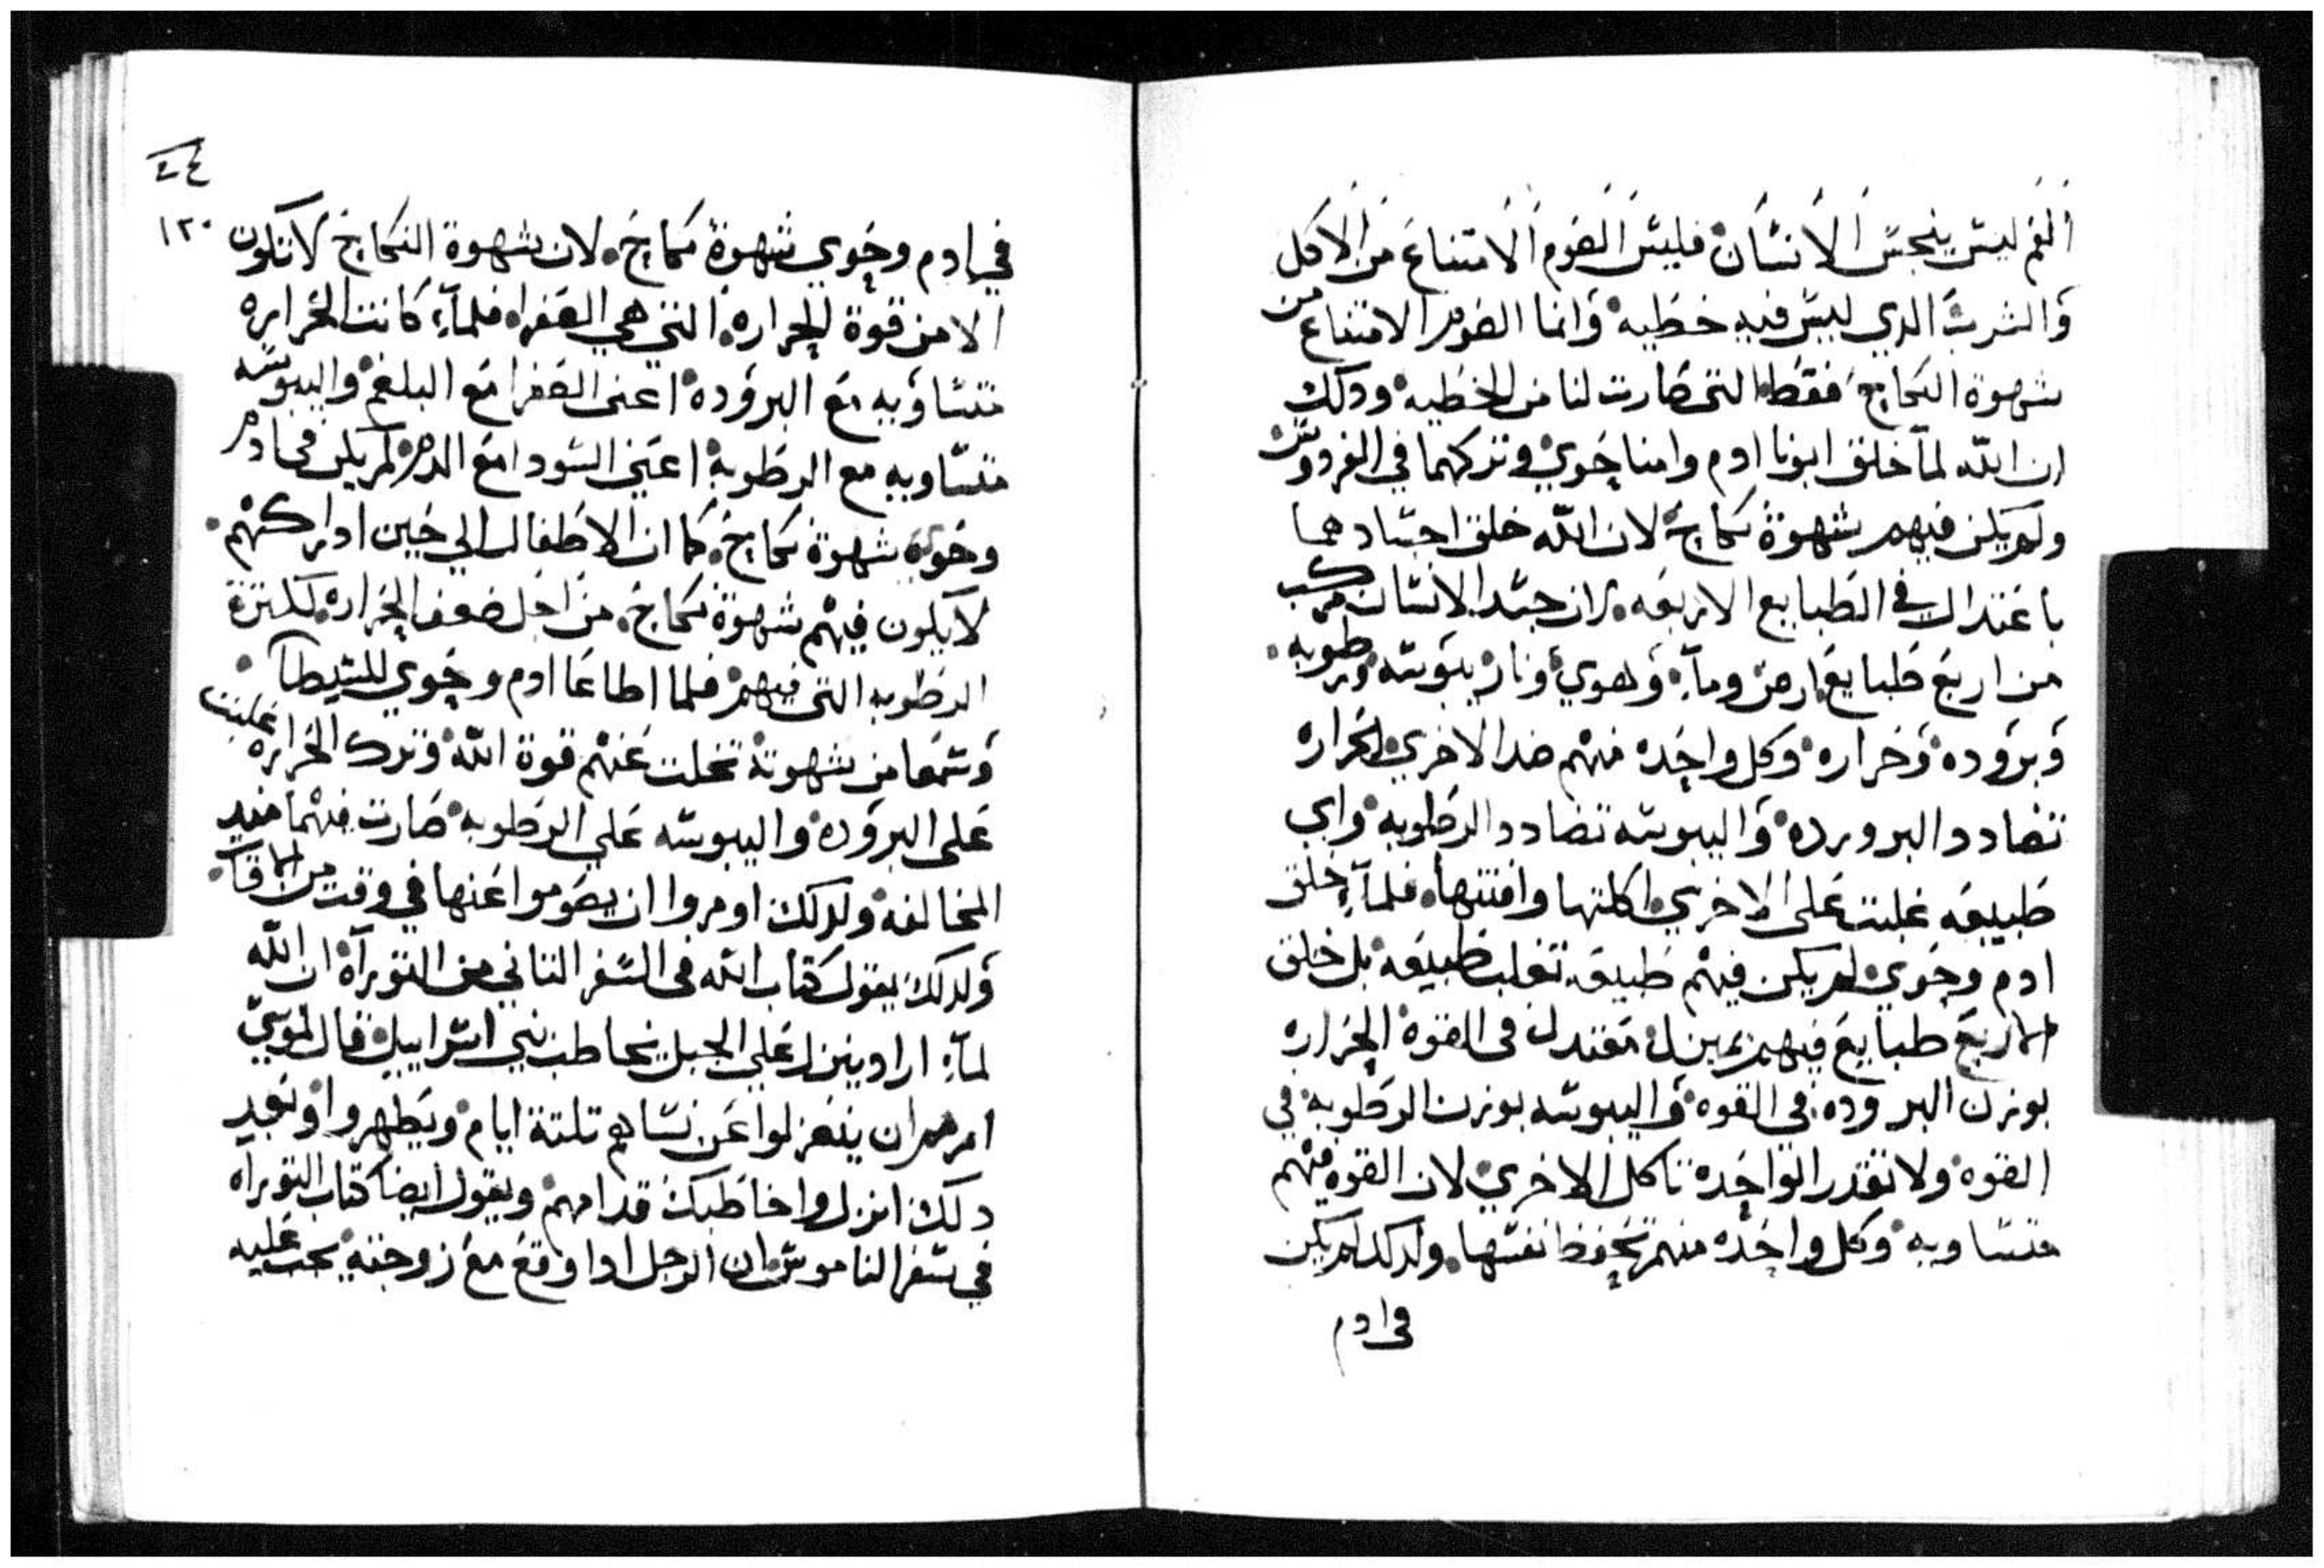 الفم ليس ينجس الانسان فليس الصوم الامتناع من الاكل
والشرب الدي ليس فيه خطيه وانما الصوم الامتناع من
شهوة النكاح فقط التى صارت لنا من الخطيه ودلك
ان الله لما خلق ابونا ادم وامنا حوي وتركهما في الفردوس
ولم يكن فيهم شهوة نكاح لان الله خلق اجسادهما
باعتدال في الطبايع الاربعه لان جسد الانسان مركب
من اربع طبايع ارض وماء وهوي ونار يبوسه ورطوبه
وبروده وحراره وكل واحده منهم ضد الاخري الحراره
تضادد البروده واليبوسه تضادد الرطوبه واي
طبيعه غلبت على الاخري اكلتها وافنتها فلما خلق
ادم وحوي لم يكن فيهم طبيعه تغلب طبيعه بل خلق
الاربع طبايع فيهم بميزان معتدل في القوة الحراره
بوزن البروده في القوه واليبوسه بوزن الرطوبه في
القوه ولا تقدر الواحده تاكل الاخري لان القوه منهم
متساويه وكل واحده منهم تحفظ نفسها ولدلك لم يكن
في ادم
٤٤
١٢٠
في ادم وحوي شهوة نكاح لان شهوة النكاح لا تكون
الا من قوة الحراره التي هي الصفراء فلما كانت الحراره
متساويه مع البروده اعنى الصفرا مع البلغم واليبوسه
متساويه مع الرطوبه اعني السودا مع الدم لم يكن في ادم
وحوي شهوة نكاح كما ان الاطفال الي حين ادراكهم
لا يكون فيهم شهوة نكاح من اجل ضعف الحراره لكثرة
الرطوبه التى فيهم فلما اطاعا ادم وحوي للشيطان
وسمعا من شهوته تخلت عنهم قوة الله وترك الحراره غلبت
على البروده واليبوسه علي الرطوبه صارت فيهما منيه
المخالفه ولدلك اومروا ان يصوموا عنها في وقت من الاوقات
ولدلك يقول كتاب الله في السفر التاني من التوراة ان الله
لما اراد ينزل علي الجبل يخاطب بني اسراييل قال لموسي
امرهم ان ينعزلوا عن نساهم تلتة ايام ويطهروا وبعد
دلك انزل واخاطبك قدامهم ويقول ايضا كتاب التوراه
في سفر الناموس ان الرجل ادا وقع مع زوجته يجب عليه